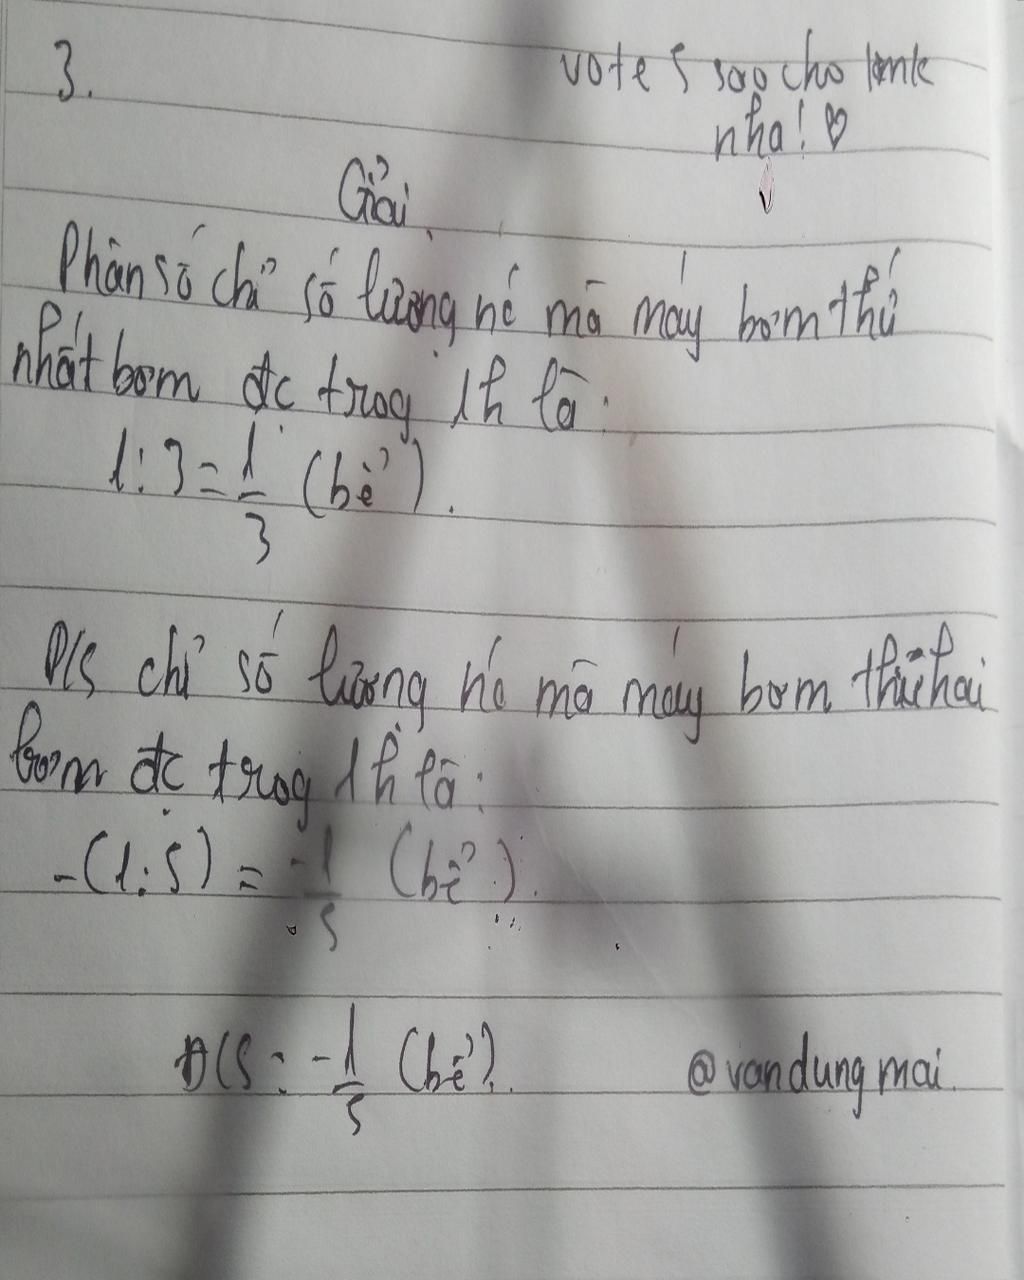 3.
vote 5 sao cho lמnk
nha! ♡
Giải
Phân số chỉ số lượng nc mà máy bơm thứ
nhất bơm đc trog 1h là:
1:3=1/3 (bể).
P/S chỉ số lượng nc mà máy bơm thứ hai
bơm đc trog 1h là:
-(1:5) = -1/5 (bể).
Đ/S: -1/5 (bể).
@vandungmai.